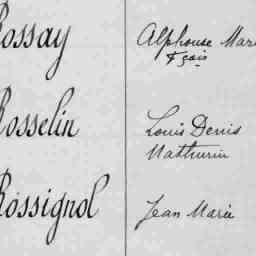 Rossay Alphonse Mari
& Fçois
Rosselin Louis Denis
Mathurin
Rossignol Jean Marie